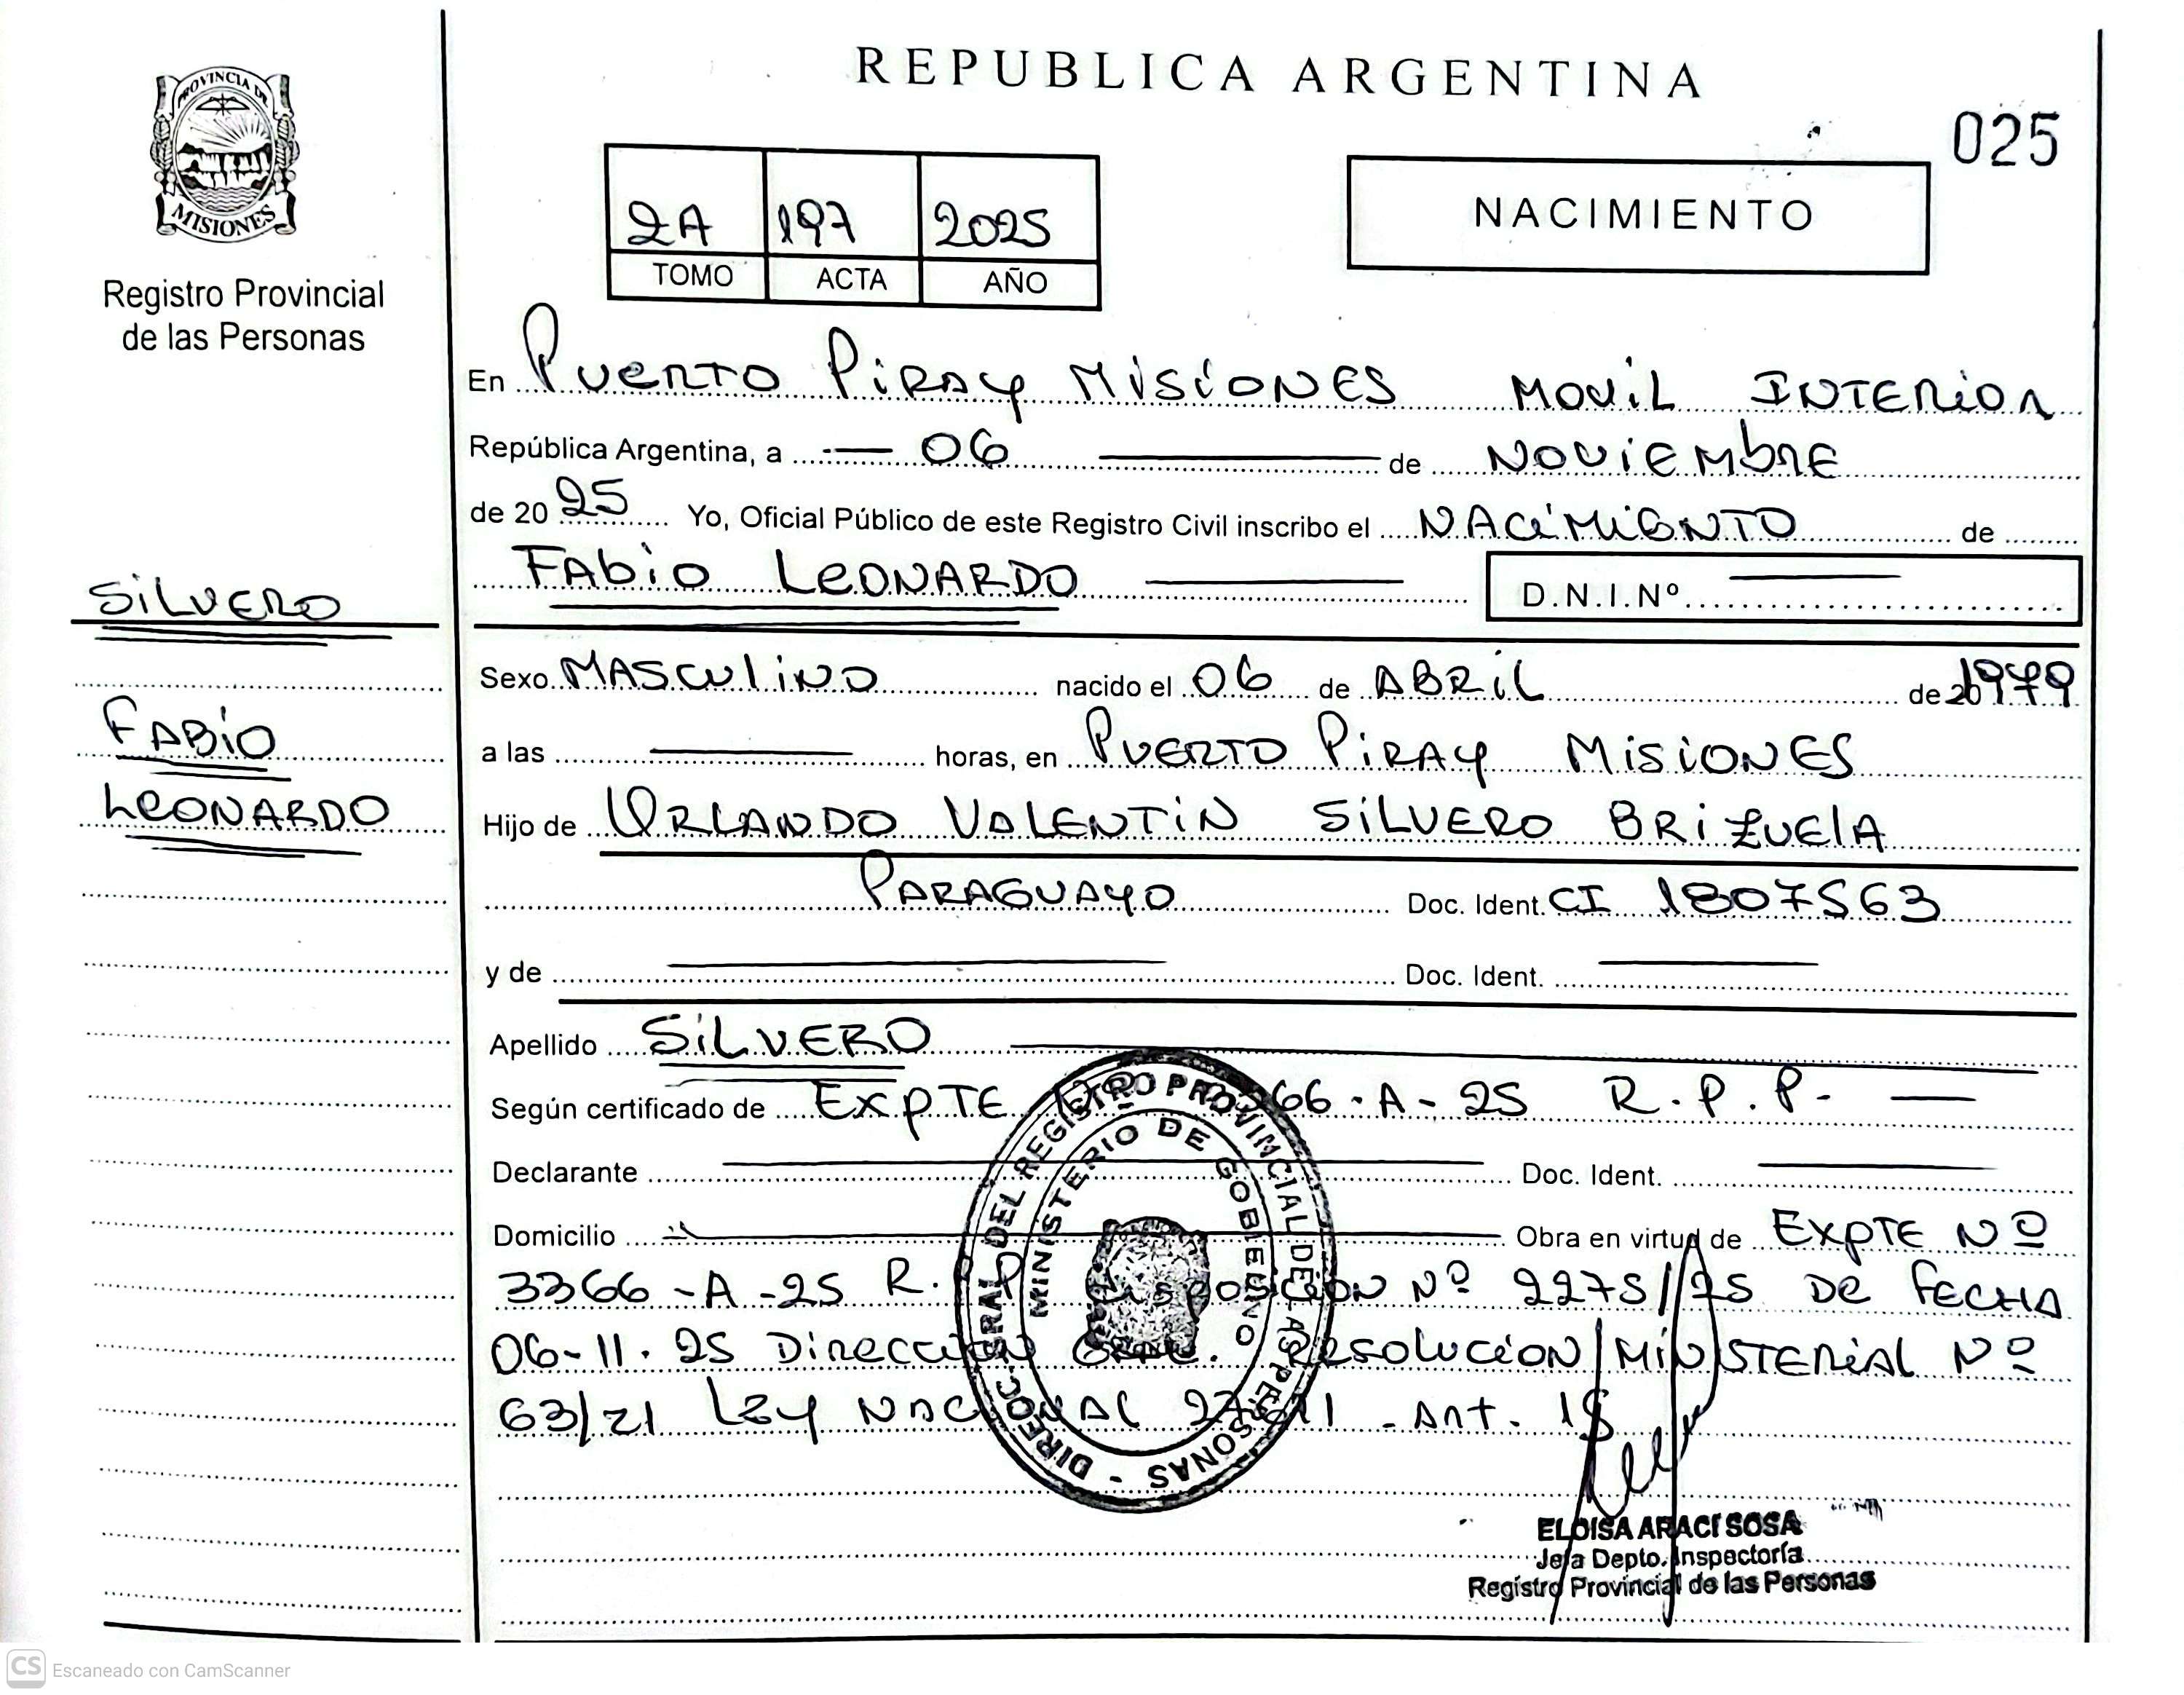 REPUBLICA ARGENTINA
025
PROVINCIA DE
MISIONES
Registro Provincial
de las Personas
2A 197 2025
TOMO ACTA AÑO
NACIMIENTO
En Puerto Piray Misiones Movil Interior
República Argentina, a 06 de Noviembre
de 2025 Yo, Oficial Público de este Registro Civil inscribo el NACIMIENTO de
Fabio Leonardo D.N.I.Nº
Silvero
Fabio
Leonardo
Sexo Masculino nacido el 06 de Abril de 20 1979
a las horas, en Puerto Piray Misiones
Hijo de Orlando Valentin Silvero Brizuela
Paraguayo Doc. Ident. CI 1807563
y de Doc. Ident.
Apellido Silvero
Según certificado de Expte 66-A-25 R.P.P.
Declarante Doc. Ident.
Domicilio Obra en virtud de Expte Nº
3366-A-25 R.P.P Disposicion Nº 2275/25 De fecha
06-11-25 Direccion Gral. Resolucion Ministerial Nº
63/21 Ley Nacional Art. 15
DIREC. GRAL. DEL REGISTRO PROVINCIAL DE LAS PERSONAS
MINISTERIO DE GOBIERNO
ELOISA ARACI SOSA
Jefa Depto. Inspectoría
Registro Provincial de las Personas
CS Escaneado con CamScanner